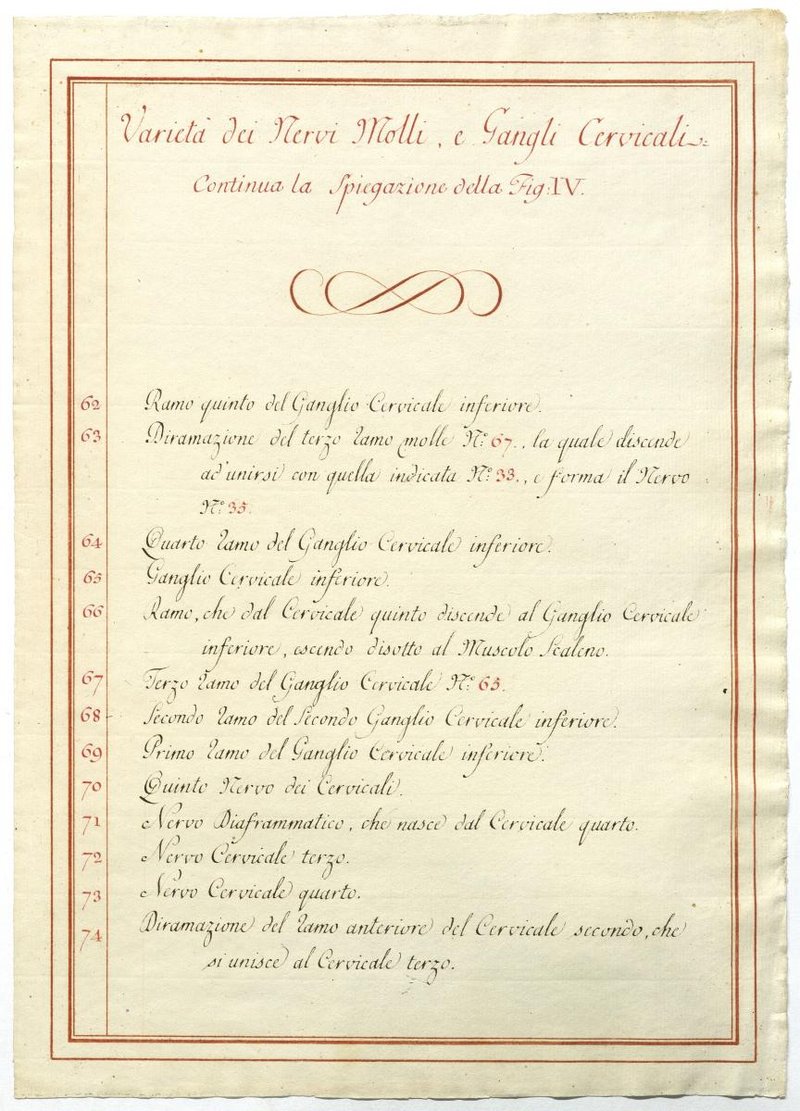 Varietà dei Nervi Molli, e Gangli Cervicali
Continua la Spiegazione della Fig: IV.
62 Ramo quinto del Ganglio Cervicale inferiore.
63 Diramazione del terzo ramo molle N.º 67., la quale discende
ad'unirsi con quella indicata N.º 33., e forma il Nervo
N.º 35.
64 Quarto ramo del Ganglio Cervicale inferiore.
65 Ganglio Cervicale inferiore.
66 Ramo, che dal Cervicale quinto discende al Ganglio Cervicale
inferiore, escendo disotto al Muscolo Scaleno.
67 Terzo ramo del Ganglio Cervicale N.º 65.
68 Secondo ramo del Secondo Ganglio Cervicale inferiore.
69 Primo ramo del Ganglio Cervicale inferiore.
70 Quinto Nervo dei Cervicali.
71 Nervo Diaframmatico, che nasce dal Cervicale quarto.
72 Nervo Cervicale terzo.
73 Nervo Cervicale quarto.
74 Diramazione del ramo anteriore del Cervicale secondo, che
si unisce al Cervicale terzo.